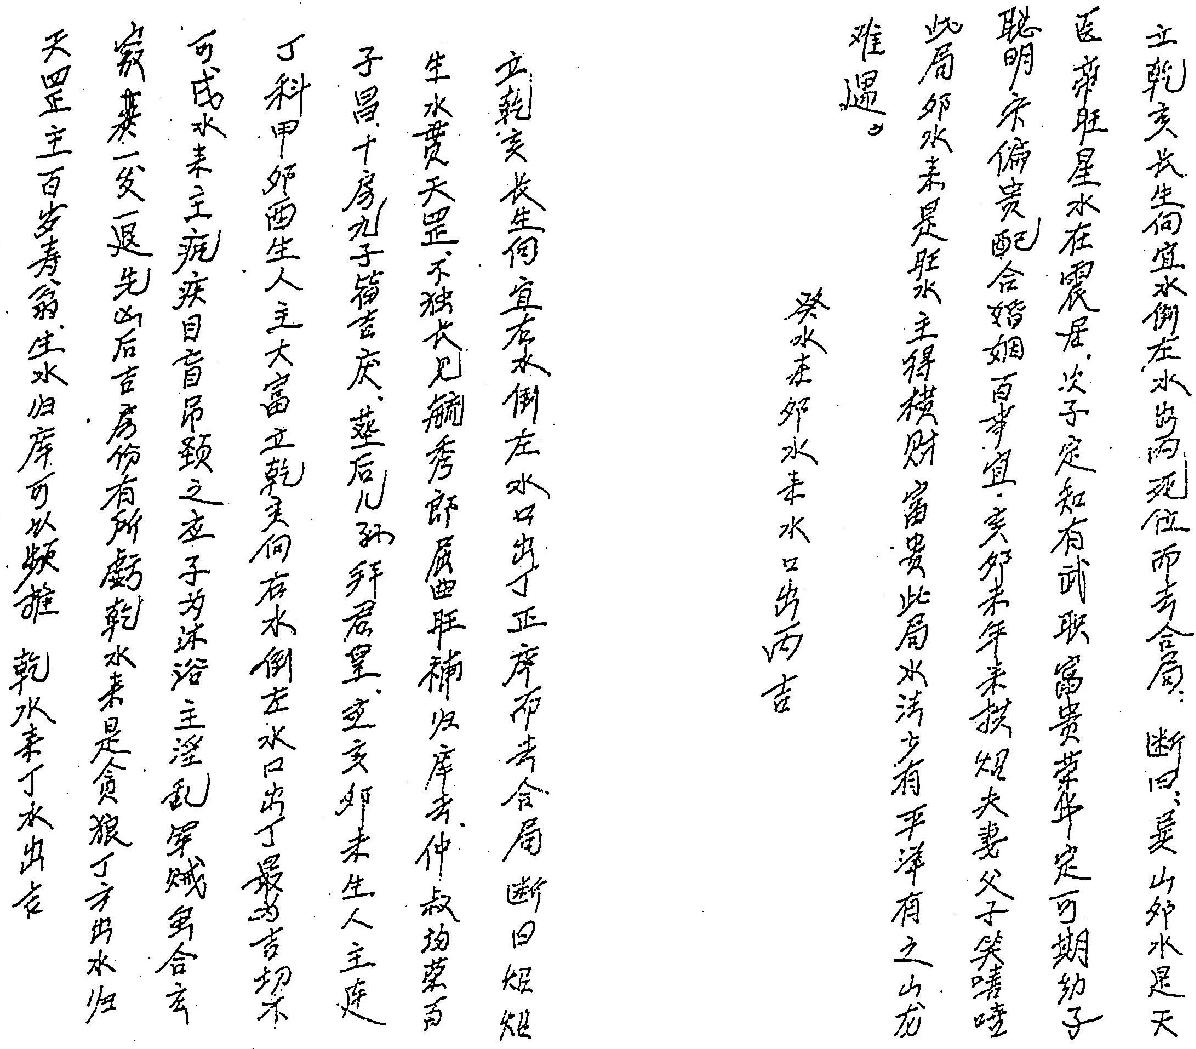 立乾亥长生向宜水倒左水出丙死位而去合局：断曰：巽山卯水是天
医帝旺星水在震居、次子定知有武职富贵荣华定可期幼子
聪明宋偏贵配合婚姻百事宜·亥卯未年来拱照夫妻父子笑嘻嘻
此局卯水来是旺水主得横财富贵此局水法少有平洋有之山龙
难遇。
癸水来卯水来水口出丙吉
立乾亥长生向宜右水倒左水口出丁正库而去合局断曰
生水贯天罡、不独长儿毓秀郎屈曲旺補归库去、仲叔均荣百
子昌、十房九子皆吉庆、葬后儿孙拜君皇、立亥卯未生人主连
丁科甲卯酉生人主大富立乾亥向右水倒左水口出丁最为吉切不
可戌水来主疾目盲吊颈之应子为沐浴主淫乱军贼合玄
寂葬一发一退先凶后吉房份有所虧乾水来是贪狼丁方出水归
天罡主百岁寿翁、生水归库可以类推 乾水来丁水出吉